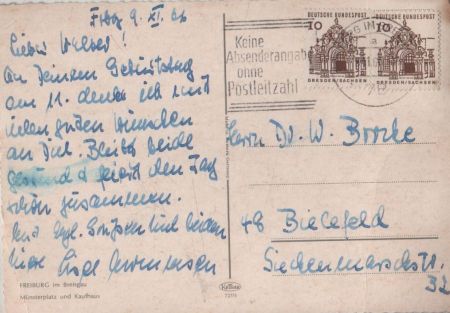 Frbg 9. XI. 66
Lieber Walter!
An Deinem Geburtstag
am 11. denke ich mit
vielen guten Wünschen
an Dich. Bleibt beide
gesund & feiert den Tag
schön zusammen.
Mit hzgl. Grüßen Euch beiden
FREIBURG im Breisgau
Münsterplatz und Kaufhaus
7291
Keine
Absenderangabe
ohne
Postleitzahl
DEUTSCHE BUNDESPOST
10
DRESDEN/SACHSEN
DEUTSCHE BUNDESPOST
10
DRESDEN/SACHSEN
Herrn Dr. W. Brocke
48 Bielefeld
Siechenmarschstr.
32